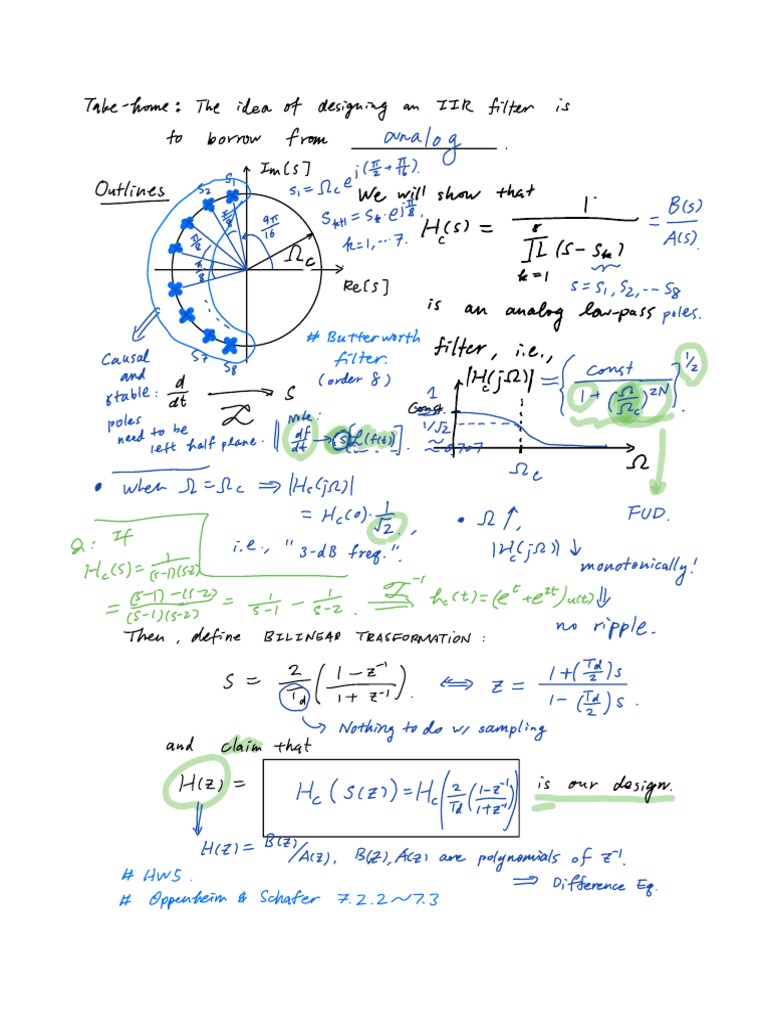 Take-home: The idea of designing an IIR filter is
to borrow from analog.
Outlines
Im[s]
Re[s]
Ωc
S1
S2
S7
S8
π/8
π/8
π/8
9π/16
s1 = Ωc e^{j(π/2 + π/16)}.
S_{k+1} = S_k · e^{jπ/8},
k=1, ... 7.
We will show that
Hc(s) = 1 / ∏_{k=1}^{8} (s - s_k) = B(s)/A(s).
s = s1, s2, ... s8
poles.
is an analog low-pass
filter, i.e.,
# Butterworth
filter.
(order 8)
Causal
and
stable:
poles
need to be
left half plane.
d/dt → s
ℒ
Note:
df/dt → s[ℒ(f(t)].
|Hc(jΩ)| = { const / (1 + (Ω/Ωc)^{2N}) }^{1/2}.
1
Const.
1/√2
≈ 0.707
Ωc
Ω
FUD.
• when Ω = Ωc ⇒ |Hc(jΩ)|
= Hc(0) · 1/√2.,
i.e., "3-dB freq.".
• Ω ↑,
|Hc(jΩ)| ↓
monotonically!
⇓
no ripple.
Q: If
Hc(s) = 1/((s-1)(s-2)
= ((s-1) - (s-2))/((s-1)(s-2)) = 1/(s-1) - 1/(s-2). ℒ^{-1} hc(t) = (e^t + e^{2t})u(t)
Then, define BILINEAR TRASFORMATION:
s = 2/Td ( (1 - z^{-1})/(1 + z^{-1}) ). ⇔ z = (1 + (Td/2)s)/(1 - (Td/2)s).
↳ Nothing to do w/ sampling
and claim that
H(z) = Hc(s(z)) = Hc(2/Td((1-z^{-1})/(1+z^{-1})) is our design.
H(z) = B(z)/A(z), B(z), A(z) are polynomials of z^{-1}.
⇒ Difference Eq.
# HW5.
# Oppenheim & Schafer 7.2.2~7.3